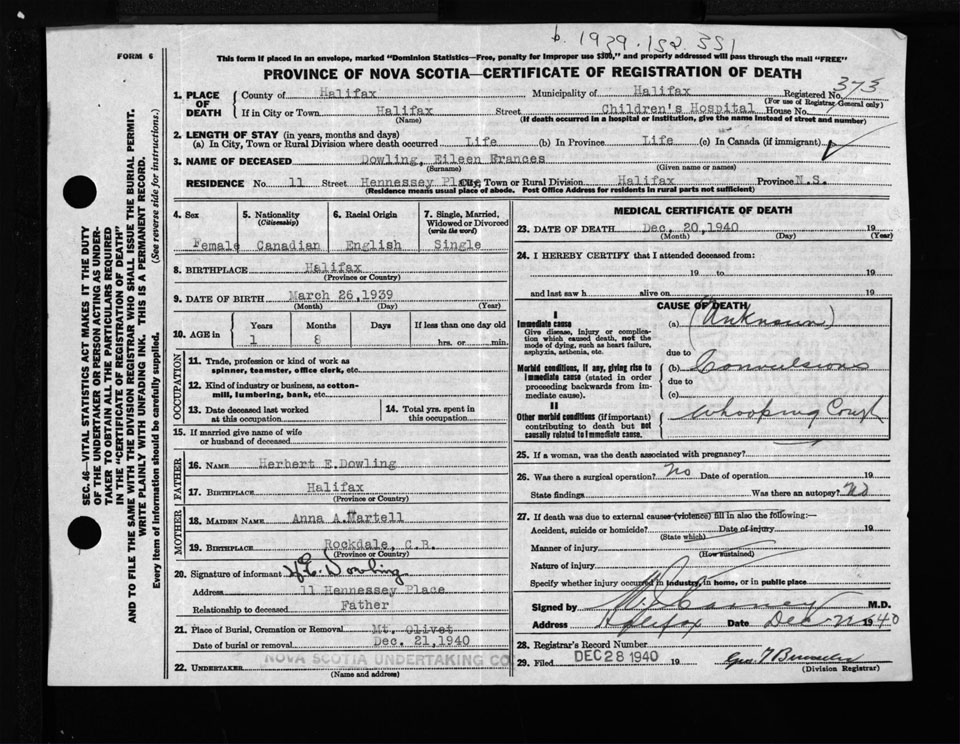 b. 1939.152.351
FORM 6
This form if placed in an envelope, marked "Dominion Statistics—Free, penalty for improper use $300," and properly addressed will pass through the mail "FREE"
PROVINCE OF NOVA SCOTIA—CERTIFICATE OF REGISTRATION OF DEATH
1. PLACE OF DEATH
County of Halifax Municipality of Halifax Registered No. 373
(For use of Registrar General only)
If in City or Town Halifax Street Children's Hospital House No.
(Name) (If death occurred in a hospital or institution, give the name instead of street and number)
2. LENGTH OF STAY (in years, months and days)
(a) In City, Town or Rural Division where death occurred Life (b) In Province Life (c) In Canada (if immigrant)
3. NAME OF DECEASED Dowling, Eileen Frances
(Surname) (Given name or names)
RESIDENCE No. 11 Street Hennessey Place City, Town or Rural Division Halifax Province N.S.
(Residence means usual place of abode. Post Office Address for residents in rural parts not sufficient)
4. Sex 5. Nationality (Citizenship) 6. Racial Origin 7. Single, Married, Widowed or Divorced (write the word)
Female Canadian English Single
8. BIRTHPLACE Halifax
(Province or Country)
9. DATE OF BIRTH March 26, 1939
(Month) (Day) (Year)
10. AGE in Years Months Days If less than one day old
1 8 hrs. or min.
OCCUPATION
11. Trade, profession or kind of work as spinner, teamster, office clerk, etc.
12. Kind of industry or business, as cotton-mill, lumbering, bank, etc.
13. Date deceased last worked at this occupation
14. Total yrs. spent in this occupation
15. If married give name of wife or husband of deceased
FATHER
16. NAME Herbert E. Dowling
17. BIRTHPLACE Halifax
(Province or Country)
MOTHER
18. MAIDEN NAME Anna A. Martell
19. BIRTHPLACE Rockdale, C.B.
(Province or Country)
20. Signature of informant H E Dowling
Address 11 Hennessey Place
Relationship to deceased Father
21. Place of Burial, Cremation or Removal Mt. Olivet
Date of burial or removal Dec. 21, 1940
22. UNDERTAKER NOVA SCOTIA UNDERTAKING CO.
(Name and address)
MEDICAL CERTIFICATE OF DEATH
23. DATE OF DEATH Dec. 20, 1940 19
(Month) (Day) (Year)
24. I HEREBY CERTIFY that I attended deceased from:
19 to 19
and last saw h alive on 19
CAUSE OF DEATH
I
Immediate cause
Give disease, injury or complication which caused death, not the mode of dying, such as heart failure, asphyxia, asthenia, etc.
(a) (Unknown)
due to
Morbid conditions, if any, giving rise to immediate cause (stated in order proceeding backwards from immediate cause).
(b) Convulsions
due to
(c)
II
Other morbid conditions (if important) contributing to death but not causally related to immediate cause.
Whooping Cough
25. If a woman, was the death associated with pregnancy?
26. Was there a surgical operation? No Date of operation 19
State findings Was there an autopsy? No
27. If death was due to external causes (violence) fill in also the following:—
Accident, suicide or homicide? Date of injury 19
(State which)
Manner of injury
(How sustained)
Nature of injury
Specify whether injury occurred in industry, in home, or in public place
Signed by M.D.
Address Halifax Date Dec 1940
28. Registrar's Record Number
29. Filed DEC 28 1940 19
(Division Registrar)
SEC. 46—VITAL STATISTICS ACT MAKES IT THE DUTY
OF THE UNDERTAKER OR PERSON ACTING AS UNDER-
TAKER TO OBTAIN ALL THE PARTICULARS REQUIRED
IN THE "CERTIFICATE OF REGISTRATION OF DEATH"
AND TO FILE THE SAME WITH THE DIVISION REGISTRAR WHO SHALL ISSUE THE BURIAL PERMIT.
WRITE PLAINLY WITH UNFADING INK. THIS IS A PERMANENT RECORD.
Every item of information should be carefully supplied. (See reverse side for instructions.)